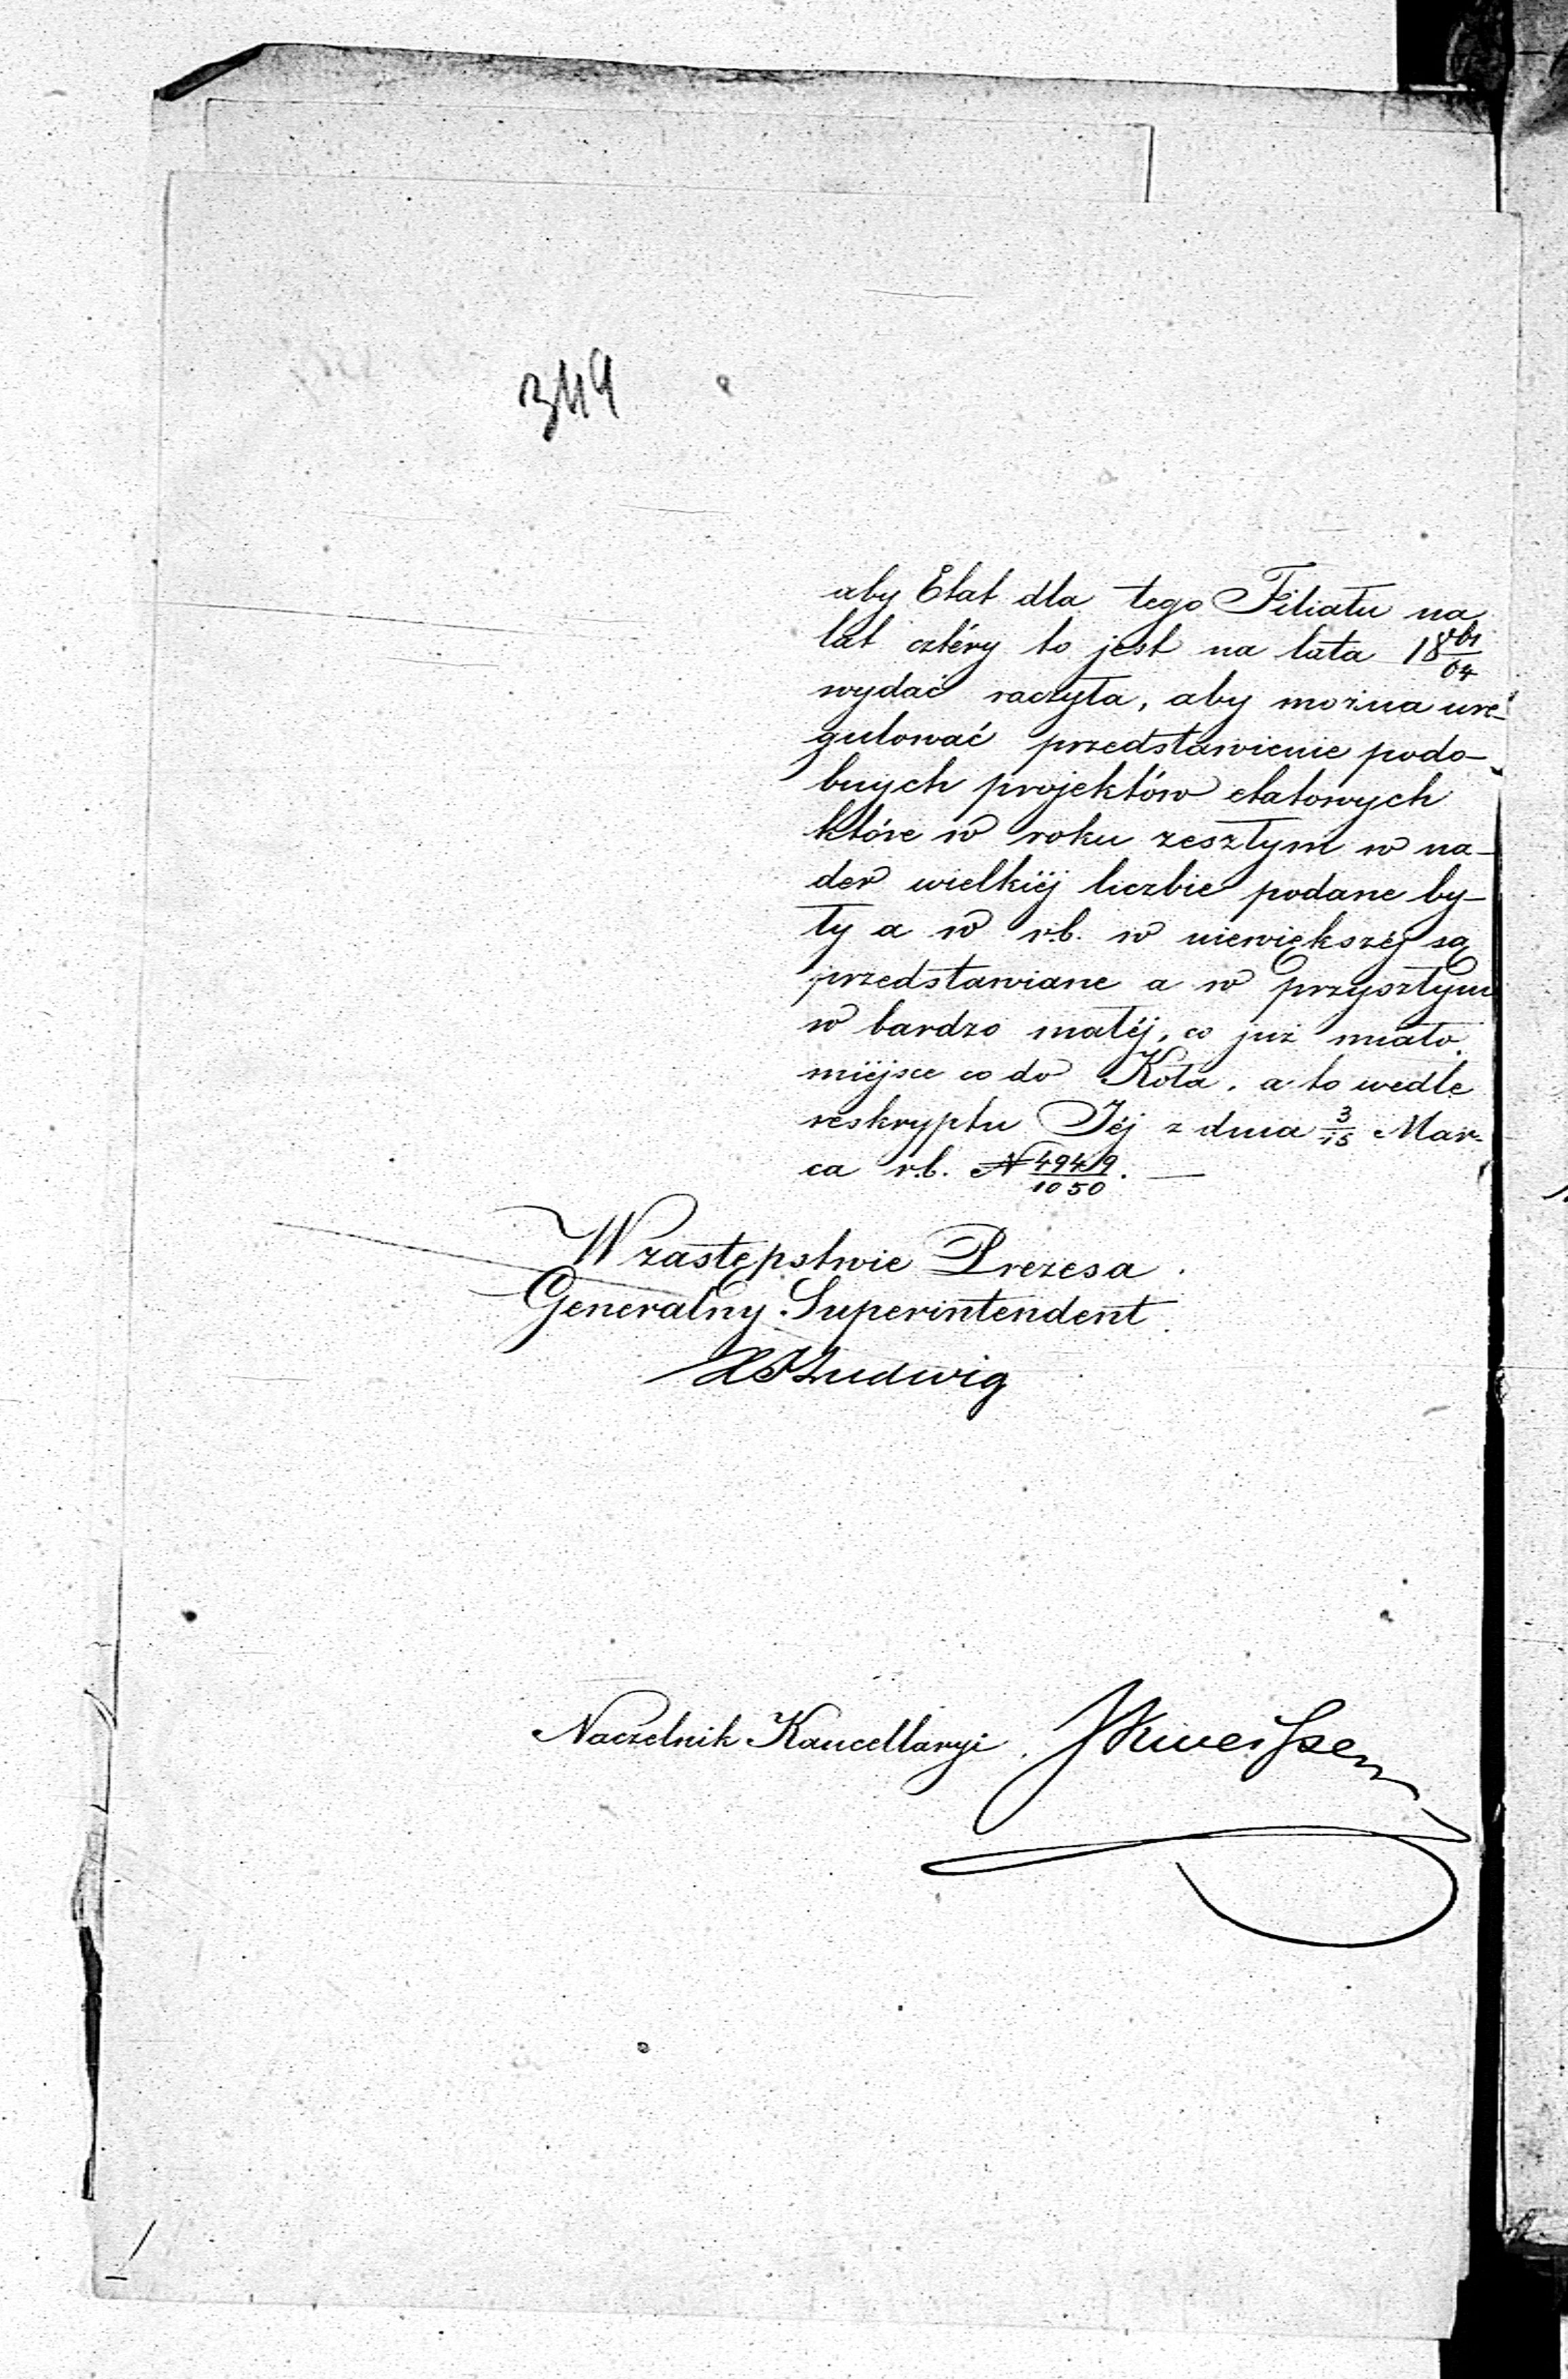 349
aby Etat dla tego Filiału na
lat cztéry to jest na lata 18 61/64
wydać raczyła, aby można ure-
gulować przedstawienie podo-
bnych projektów etatowych
które w roku zeszłym w na-
der wielkiéj liczbie podane by-
ły a w r.b. w niewiększéj są
przedstawiane a w przyszłym
w bardzo małéj, co już miało
miéjsce co do Koła, a to wedle
reskryptu Jéj z dnia 3/15 Mar-
ca r.b. N 4949/1050. —
W zastępstwie Prezesa
Generalny Superintendent
Ludwig
Naczelnik Kancellaryi